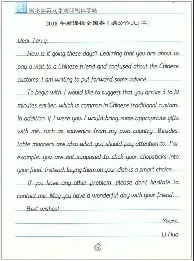 2018年普通高考全国卷I满分作文(一)
Dear Terry,
How is it going these days? Learning that you are about to
pay a visit to a Chinese friend and confused about the Chinese
customs, I am writing to put forward some advice.
To begin with, I would like to suggest that you arrive 5 to 10
minutes earlier, which is common in Chinese traditional custom.
In addition, if I were you, I would bring some appropriate gifts
with me, such as souvenirs from my own country. Besides,
table manners are also what you should pay attention to. For
example, you are not supposed to stick your chopsticks into
your food. Instead, laying them on your dish is a smart choice.
If you have any other problem, please don't hesitate to
contact me. May you have a wonderful day with your friend.
Best wishes!
Yours,
Li Hua